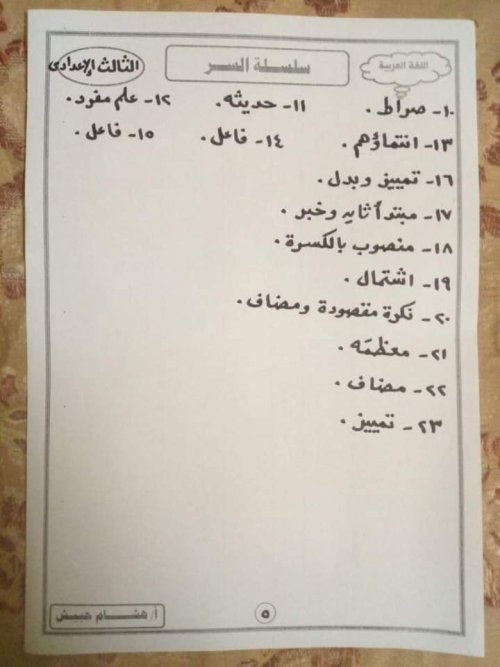 اللغة العربية
سلسلة السر
الثالث الإعدادى
١٠- صراط . ١١- حديثه . ١٢- علم مفرد .
١٣- انتماؤهم . ١٤- فاعل . ١٥- فاعل .
١٦- تمييز وبدل .
١٧- مبتدأ ثانٍ وخبر .
١٨- منصوب بالكسرة .
١٩- اشتمال .
٢٠- نكرة مقصودة ومضاف .
٢١- معظمَه .
٢٢- مضاف .
٢٣- تمييز .
٥
أ/ هشام حبش